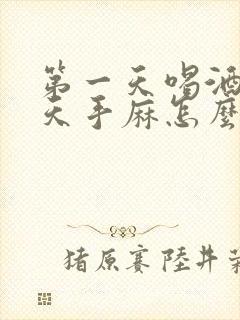 第一天喝酒
天手麻怎麼
猪原赛陸井